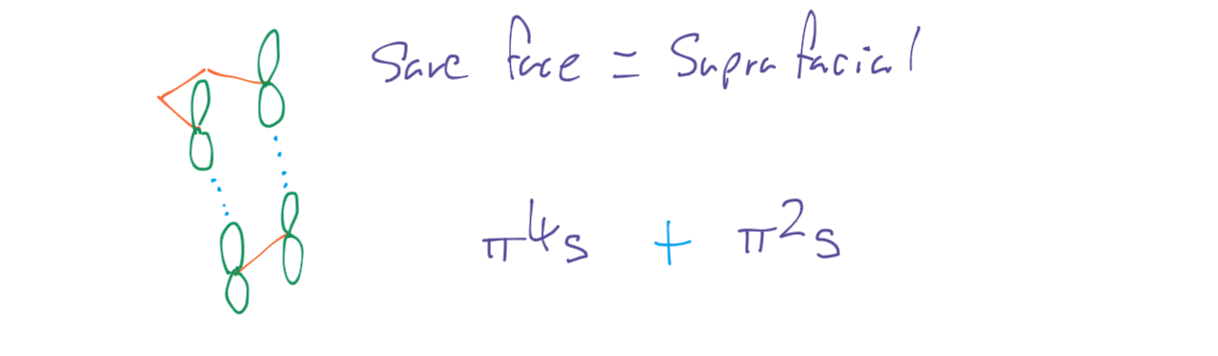 Same face = Suprafacial
π4s + π2s